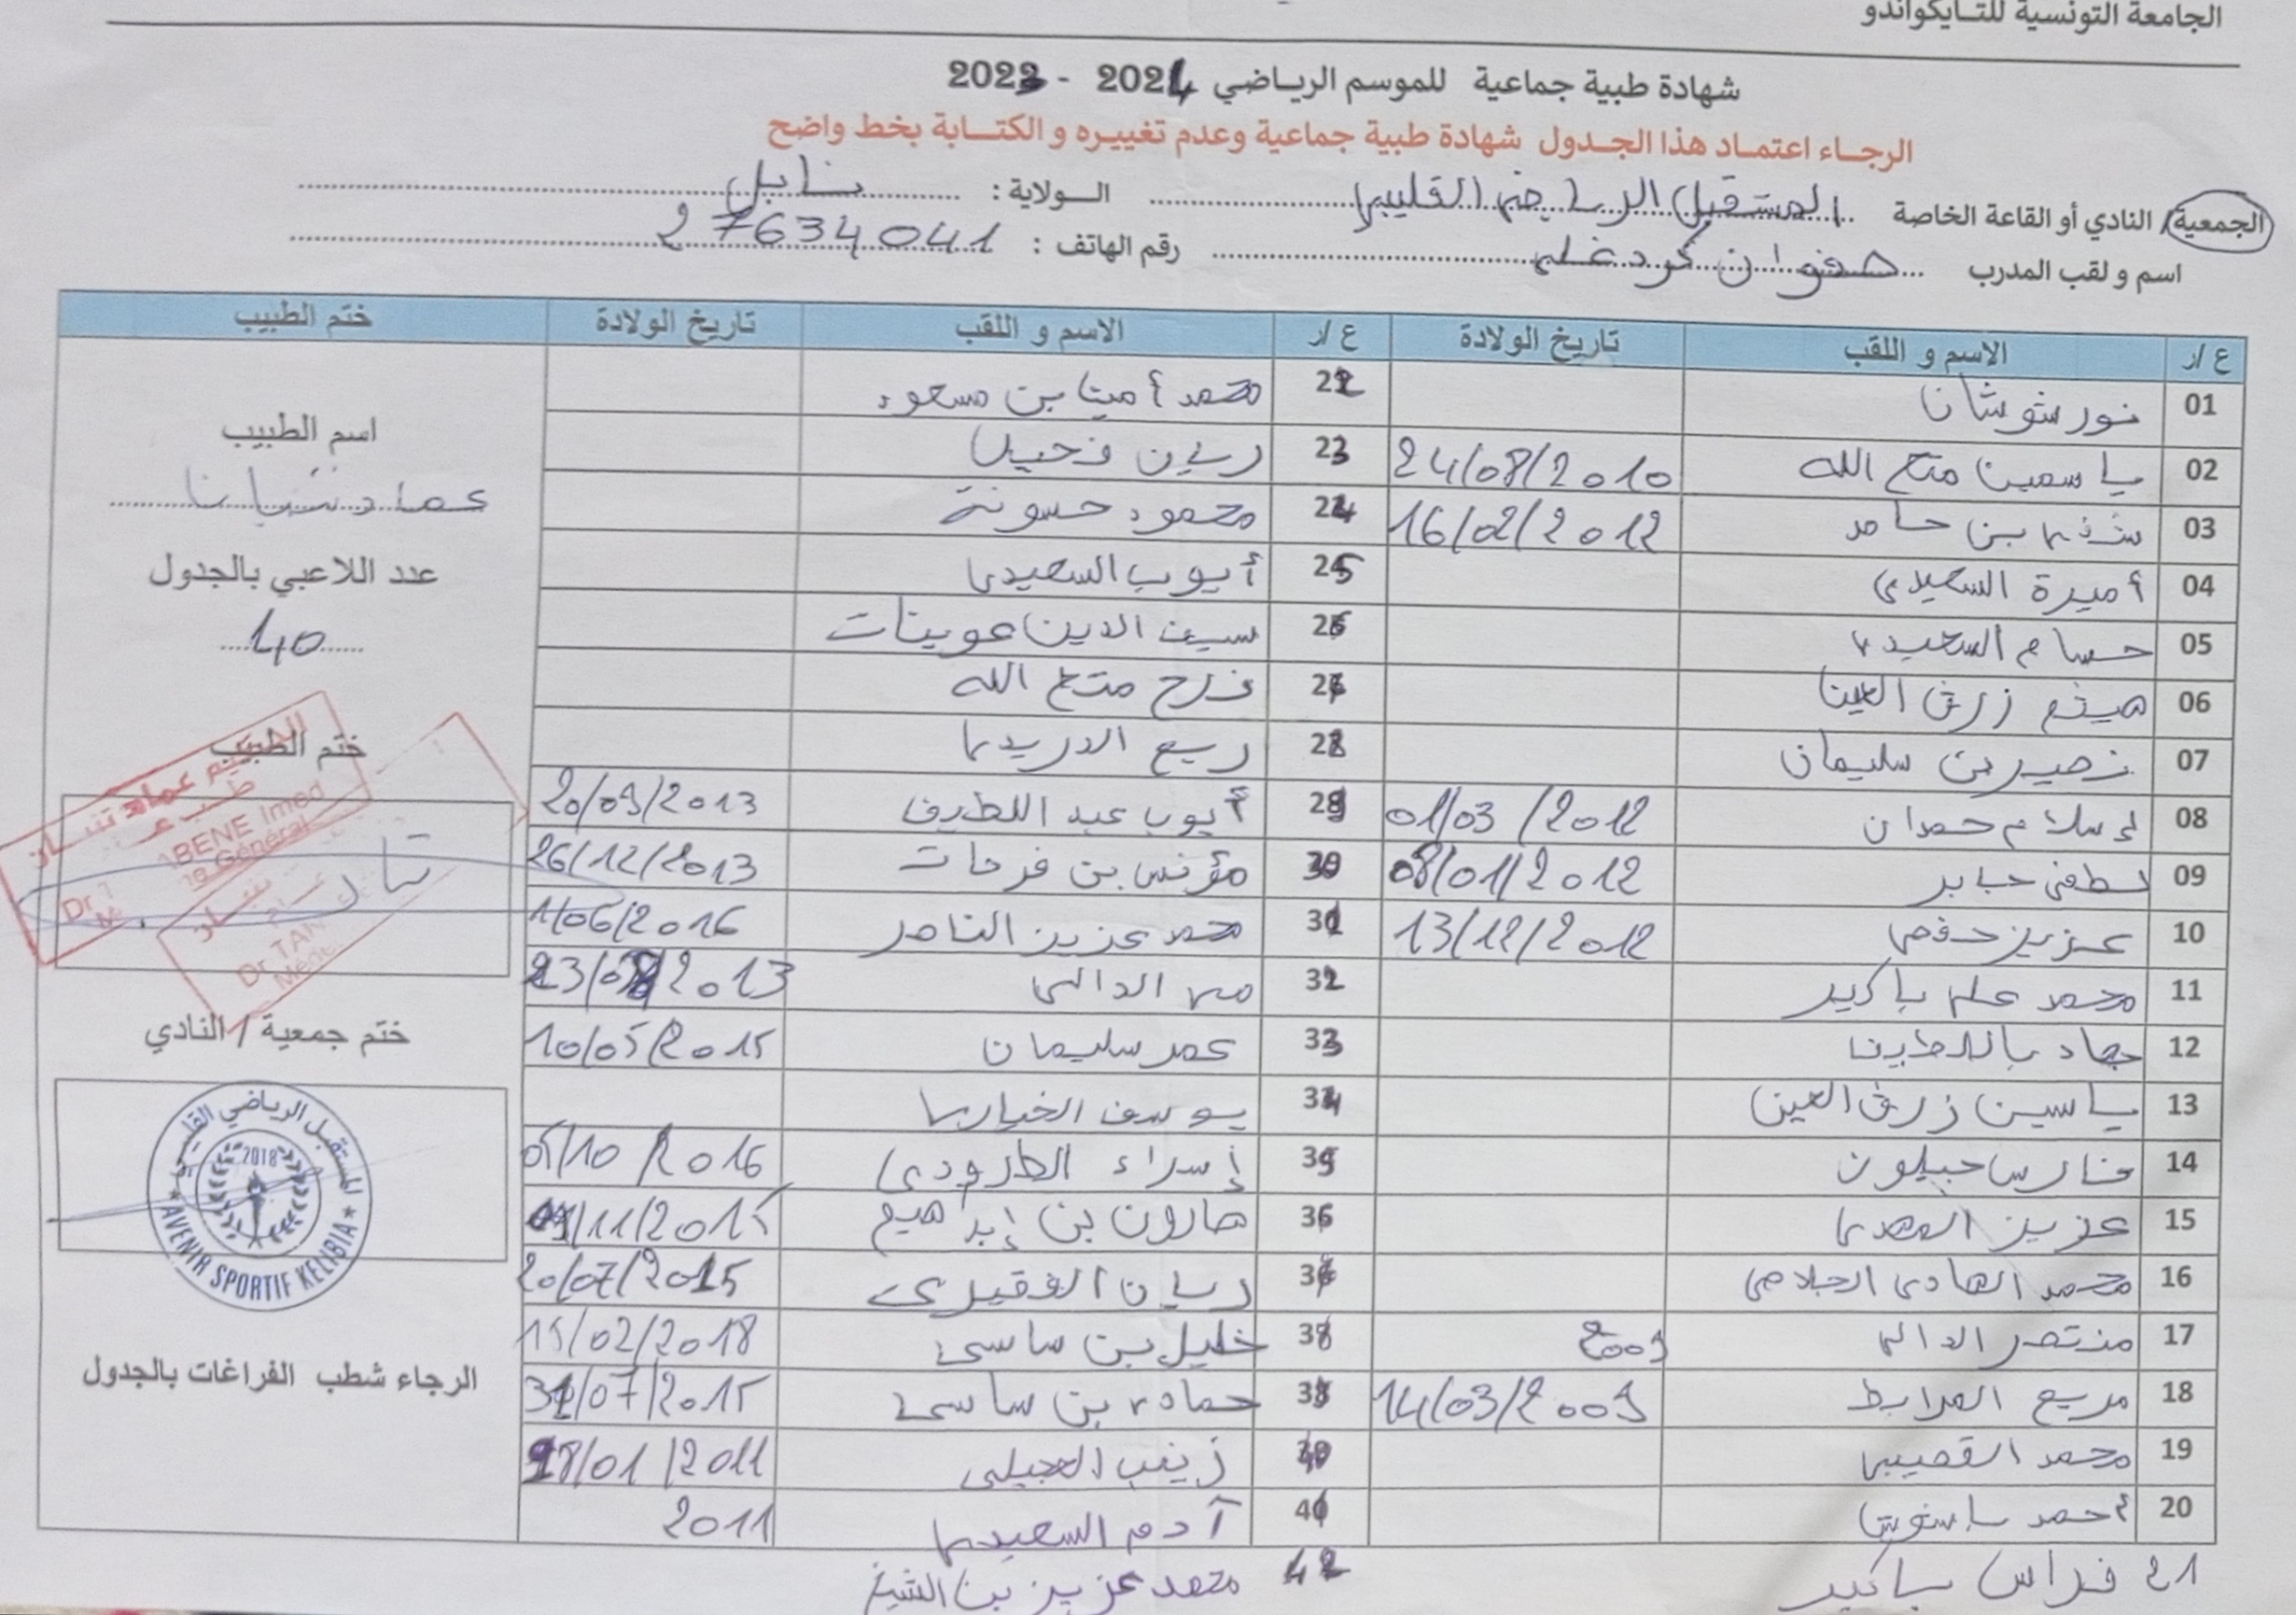 الجامعة التونسية للتايكواندو
شهادة طبية جماعية للموسم الرياضي 2024 - 2023
الرجاء اعتماد هذا الجدول شهادة طبية جماعية وعدم تغييره و الكتابة بخط واضح
الجمعية/ النادي أو القاعة الخاصة المستقبل الرياضي القليبي الولاية : نابل
اسم و لقب المدرب صفوان كردغلي رقم الهاتف : 27634041
ع /ر الاسم و اللقب تاريخ الولادة ع /ر الاسم و اللقب تاريخ الولادة ختم الطبيب
01 نور شوشان 22 محمد أمين بن مسعود
02 ياسمين متع الله 24/08/2010 23 ريان فحيل
03 بن حامد 16/02/2012 24 محمود حسونة
04 أميرة السعيدي 25 أيوب السعيدي
05 حسام السعيدي 26 سيف الدين عوينات
06 هيثم زرق العين 27 فرح متع الله
07 نصير بن سليمان 28 ربيع الدريدي
08 إسلام حمدان 01/03/2012 29 أيوب عبد اللطيف 20/09/2013
09 لطفي جابر 08/01/2012 30 مؤنس بن فرحات 26/12/2013
10 عزيز حفصي 13/12/2012 31 محمد عزيز الناصر 1/06/2016
11 محمد علي باكير 32 مي الدالي 2013
12 جهاد باللطيف 33 عمر سليمان 10/05/2015
13 ياسين زرق العين 34 يوسف الخياري
14 فارس جبلون 35 إسراء الطرودي 05/10/2016
15 عزيز المهدي 36 هارون بن إبراهيم /11/2015
16 محمد الهادي الجلاصي 37 ريان الفقيري 20/07/2015
17 منتصر الدالي 2009 38 خليل بن ساسي 15/02/2018
18 مريم المرابط 14/03/2009 39 حمادي بن ساسي 31/07/2015
19 محمد القصيبي 40 زينب العجيلي /01/2011
20 أحمد 41 آدم السعيدي 2011
21 فراس باكير 42 محمد عزيز بن الشيخ
اسم الطبيب
عماد تبان
عدد اللاعبي بالجدول
40
ختم الطبيب
الحكيم عماد
ABENE Imed
Général
Dr TA
ختم جمعية / النادي
المستقبل الرياضي القليبي
2018
AVENIR SPORTIF KELIBIA
الرجاء شطب الفراغات بالجدول